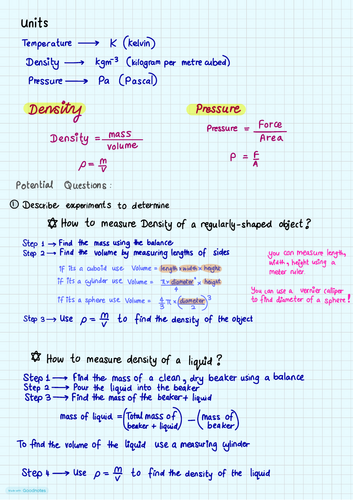 Units
Temperature ⟶ K (kelvin)
Density ⟶ kgm⁻³ (kilogram per metre cubed)
Pressure ⟶ Pa (Pascal)
Density
Density = mass / volume
ρ = m / V
Pressure
Pressure = Force / Area
P = F / A
Potential Questions:
① Describe experiments to determine
✡ How to measure Density of a regularly-shaped object?
Step 1 → Find the mass using the balance
Step 2 → Find the volume by measuring lengths of sides
If its a cuboid use Volume = length × width × height
If its a cylinder use Volume = π × diameter² / 4 × height
If its a sphere use Volume = 4/3 π × (diameter / 2)³
you can measure length,
width, height using a
meter ruler.
You can use a vernier caliper
to find diameter of a sphere!
Step 3 → use ρ = m / V to find the density of the object
✡ How to measure density of a liquid?
Step 1 → Find the mass of a clean, dry beaker using a balance
Step 2 → Pour the liquid into the beaker
Step 3 → Find the mass of the beaker + liquid
mass of liquid = (Total mass of beaker + liquid) − (mass of beaker)
To find the volume of the liquid use a measuring cylinder
Step 4 → use ρ = m / V to find the density of the liquid